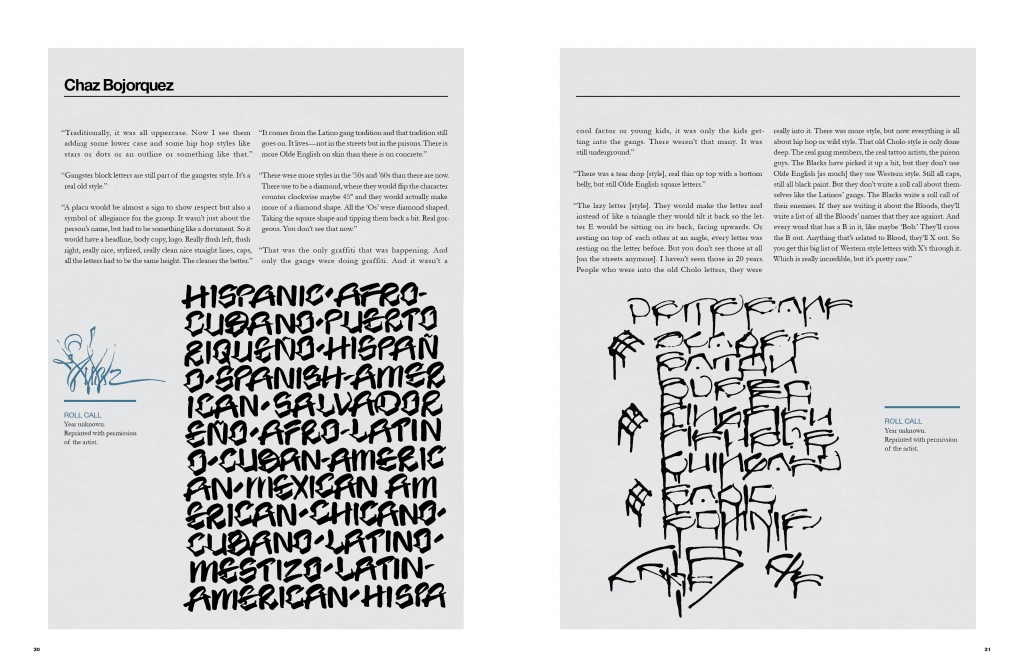 Chaz Bojorquez
“Traditionally, it was all uppercase. Now I see them
adding some lower case and some hip hop styles like
stars or dots or an outline or something like that.”
“Gangster block letters are still part of the gangster style. It’s a
real old style.”
“A placa would be almost a sign to show respect but also a
symbol of allegiance for the group. It wasn’t just about the
person’s name, but had to be something like a document. So it
would have a headline, body copy, logo. Really flush left, flush
right, really nice, stylized, really clean nice straight lines, caps,
all the letters had to be the same height. The cleaner the better.”
“It comes from the Latino gang tradition and that tradition still
goes on. It lives—not in the streets but in the prisons. There is
more Olde English on skin than there is on concrete.”
“There were more styles in the ’50s and ’60s than there are now.
There use to be a diamond, where they would flip the character
counter clockwise maybe 45° and they would actually make
more of a diamond shape. All the ‘Os’ were diamond shaped.
Taking the square shape and tipping them back a bit. Real gor-
geous. You don’t see that now.”
“That was the only graffiti that was happening. And
only the gangs were doing graffiti. And it wasn’t a
HISPANIC·AFRO-
CUBANO·PUERTO
RIQUEÑO·HISPAÑ
O·SPANISH-AMER
ICAN·SALVADOR
EÑO·AFRO-LATIN
O·CUBAN-AMERIC
AN·MEXICAN AM
ERICAN·CHICANO·
CUBANO·LATINO·
MESTIZO·LATIN-
AMERICAN·HISPA
ROLL CALL
Year unknown.
Reprinted with permission
of the artist.
30
cool factor or young kids, it was only the kids get-
ting into the gangs. There weren’t that many. It was
still underground.”
“There was a tear drop [style], real thin up top with a bottom
belly, but still Olde English square letters.”
“The lazy letter [style]. They would make the letter and
instead of like a triangle they would tilt it back so the let-
ter E would be sitting on its back, facing upwards. Or
resting on top of each other at an angle, every letter was
resting on the letter before. But you don’t see those at all
[on the streets anymore]. I haven’t seen those in 20 years.
People who were into the old Cholo letters, they were
really into it. There was more style, but now everything is all
about hip hop or wild style. That old Cholo style is only done
deep. The real gang members, the real tattoo artists, the prison
guys. The Blacks have picked it up a bit, but they don’t use
Olde English [as much] they use Western style. Still all caps,
still all black paint. But they don’t write a roll call about them-
selves like the Latinos’ gangs. The Blacks write a roll call of
their enemies. If they are waiting it about the Bloods, they’ll
write a list of all the Bloods’ names that they are against. And
every word that has a B in it, like maybe ‘Bob.’ They’ll cross
the B out. Anything that’s related to Blood, they’ll X out. So
you get this big list of Western style letters with X’s through it.
Which is really incredible, but it’s pretty rare.”
ROLL CALL
Year unknown.
Reprinted with permission
of the artist.
31